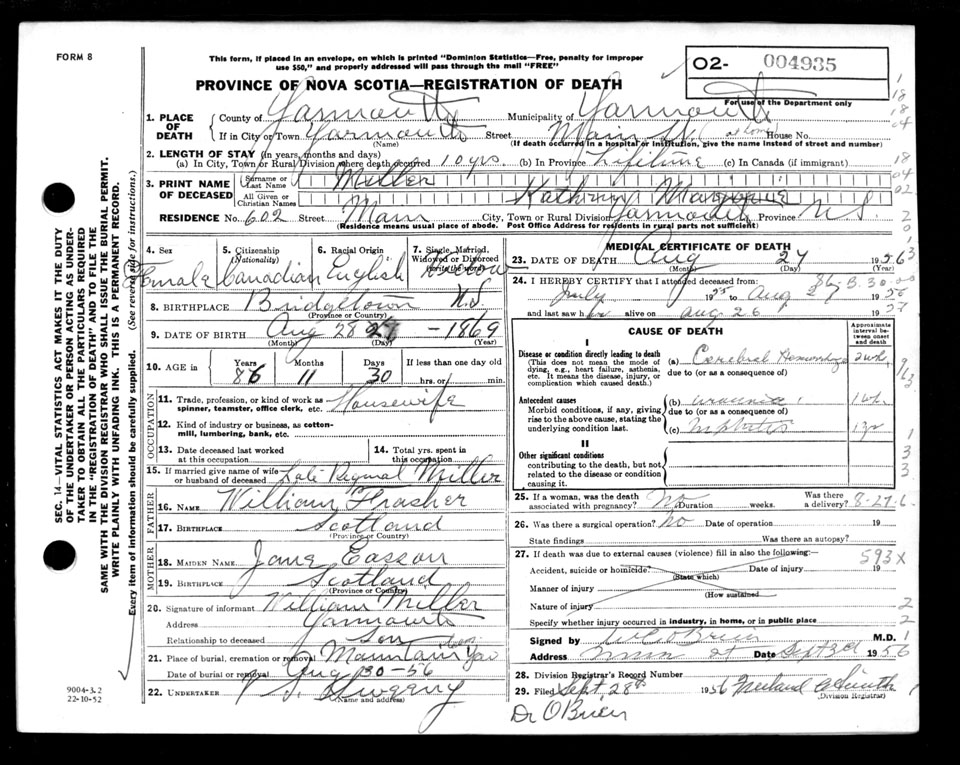 FORM 8
This form, if placed in an envelope, on which is printed "Dominion Statistics—Free, penalty for improper
use $50," and properly addressed will pass through the mail "FREE"
O2- 004935
For use of the Department only
PROVINCE OF NOVA SCOTIA—REGISTRATION OF DEATH
1. PLACE OF DEATH
County of Yarmouth Municipality of Yarmouth
If in City or Town Yarmouth Street Main St. (at home House No.
(Name) (If death occurred in a hospital or institution, give the name instead of street and number)
2. LENGTH OF STAY (in years, months and days)
(a) In City, Town or Rural Division where death occurred 10 yrs. (b) In Province lifetime (c) In Canada (if immigrant)
3. PRINT NAME OF DECEASED
Surname or Last Name Miller
All Given or Christian Names Kathryn Marjorie
RESIDENCE No. 602 Street Main City, Town or Rural Division Yarmouth Province N.S.
(Residence means usual place of abode. Post Office Address for residents in rural parts not sufficient)
4. Sex Female
5. Citizenship (Nationality) Canadian
6. Racial Origin English
7. Single, Married, Widowed or Divorced (write the word) Widow
8. BIRTHPLACE Bridgetown N.S.
(Province or Country)
9. DATE OF BIRTH Aug 28 - 1869
(Month) (Day)
10. AGE in Years 86 Months 11 Days 30 If less than one day old hrs. or min.
OCCUPATION
11. Trade, profession, or kind of work as spinner, teamster, office clerk, etc. Housewife
12. Kind of industry or business, as cotton-mill, lumbering, bank, etc.
13. Date deceased last worked at this occupation
14. Total yrs. spent in this occupation
15. If married give name of wife or husband of deceased Late Reginal Miller
FATHER
16. NAME William Frasher
17. BIRTHPLACE Scotland
(Province or Country)
MOTHER
18. MAIDEN NAME Jane Easson
19. BIRTHPLACE Scotland
(Province or Country)
20. Signature of informant William Miller
Address Yarmouth
Relationship to deceased Son
21. Place of burial, cremation or removal Mountain
Date of burial or removal Aug 30-56
22. UNDERTAKER Sweeny
(Name and address)
MEDICAL CERTIFICATE OF DEATH
23. DATE OF DEATH Aug 27 1956
(Month) (Day) (Year)
24. I HEREBY CERTIFY that I attended deceased from:
July 1955 to Aug 27 1956
and last saw her alive on Aug 26 19
CAUSE OF DEATH
Approximate interval between onset and death
I
Disease or condition directly leading to death (a) Cerebral Hemorrhage 2 wk.
(This does not mean the mode of dying, e.g., heart failure, asthenia, etc. It means the disease, injury, or complication which caused death.)
due to (or as a consequence of)
Antecedent causes (b) uraemia 1 wk.
Morbid conditions, if any, giving rise to the above cause, stating the underlying condition last.
due to (or as a consequence of)
(c) nephritis 1 yr
II
Other significant conditions
contributing to the death, but not related to the disease or condition causing it.
25. If a woman, was the death associated with pregnancy? No Duration weeks. Was there a delivery? 8-27-6
26. Was there a surgical operation? No Date of operation 19
State findings Was there an autopsy?
27. If death was due to external causes (violence) fill in also the following: 593X
Accident, suicide or homicide? Date of injury 19
(State which)
Manner of injury
(How sustained)
Nature of injury
Specify whether injury occurred in industry, in home, or in public place
Signed by O'Brien M.D.
Address Main St Date Sept 2d 1956
28. Division Registrar's Record Number
29. Filed Sept. 28th 1956
(Division Registrar)
Dr O'Brien
9004-3.2
22-10-52
SEC. 14—VITAL STATISTICS ACT MAKES IT THE DUTY
OF THE UNDERTAKER OR PERSON ACTING AS UNDER-
TAKER TO OBTAIN ALL THE PARTICULARS REQUIRED
IN THE "REGISTRATION OF DEATH" AND TO FILE THE
SAME WITH THE DIVISION REGISTRAR WHO SHALL ISSUE THE BURIAL PERMIT.
WRITE PLAINLY WITH UNFADING INK. THIS IS A PERMANENT RECORD.
Every item of information should be carefully supplied. (See reverse side for instructions.)